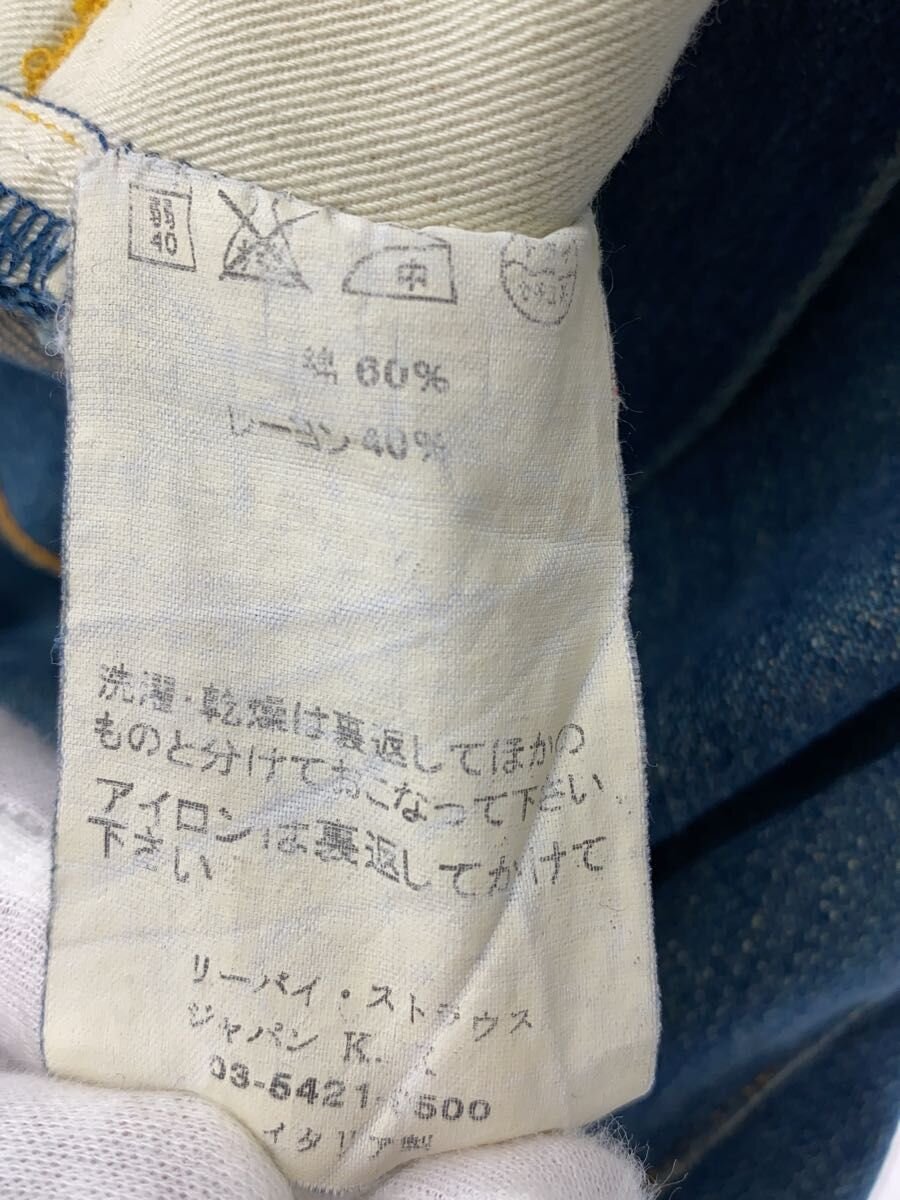 40
中
ドライ
セキユ系
綿 60%
レーヨン 40%
洗濯・乾燥は裏返してほかの
ものと分けておこなって下さい
アイロンは裏返してかけて
下さい
リーバイ・ストラウス
ジャパン K.
03-5421- 500
イタリア製